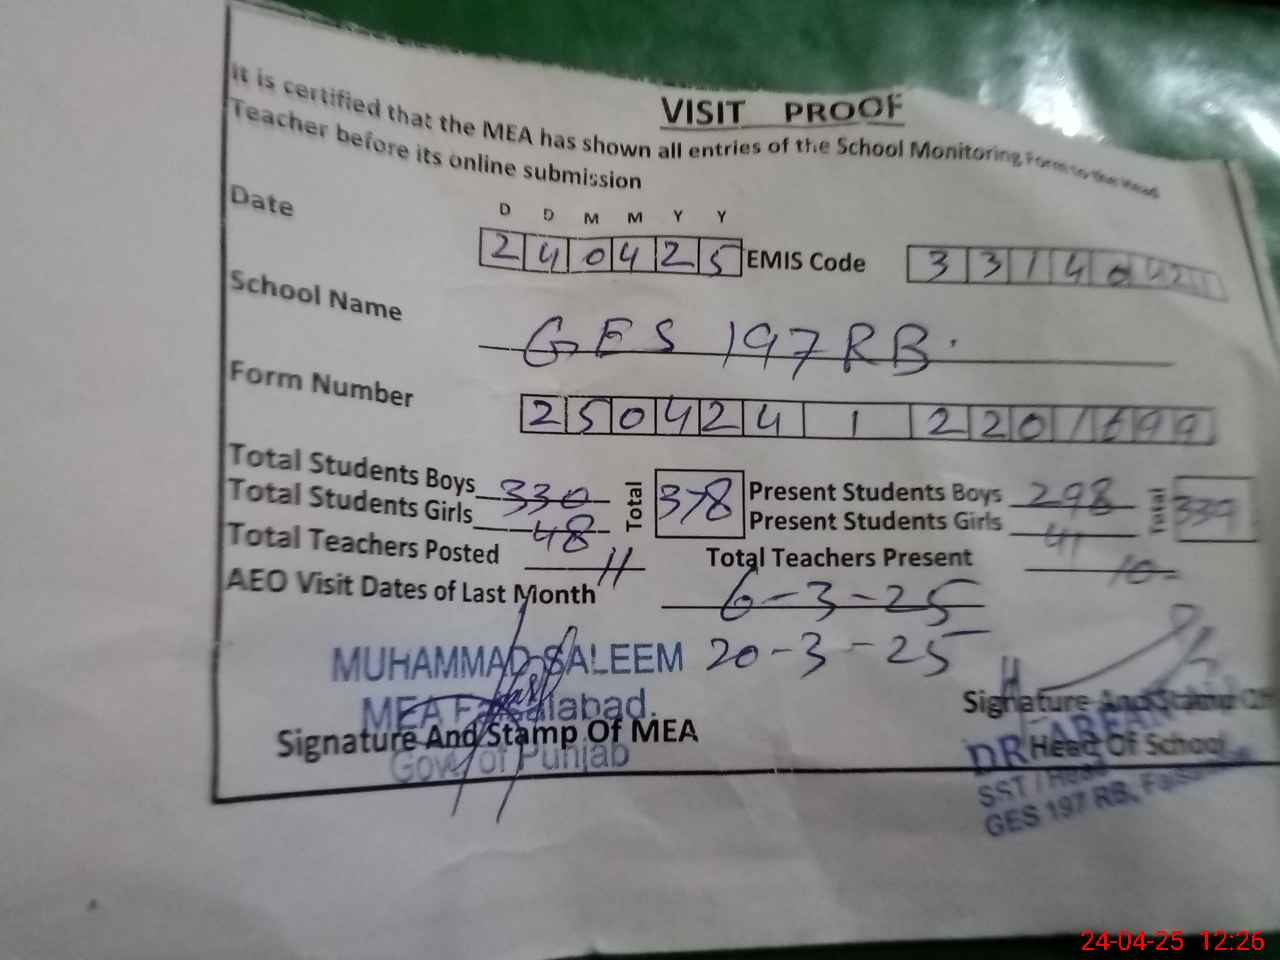 VISIT PROOF
It is certified that the MEA has shown all entries of the School Monitoring Form to the Head
Teacher before its online submission
D D M M Y Y
Date 2 4 0 4 2 5 EMIS Code 3 3 1 4 0
School Name GES 197 RB.
Form Number 2 5 0 4 2 4 1 2 2 0 1 6 9 9
Total Students Boys 330 Total 378 Present Students Boys 298 Total 339
Total Students Girls 48 Present Students Girls 41
Total Teachers Posted 11 Total Teachers Present 10
AEO Visit Dates of Last Month 6-3-25
20-3-25
MUHAMMAD SALEEM
MEA Faisalabad.
Signature And Stamp Of MEA
Govt of Punjab
Signature And Stamp Of
Head Of School
DR
SST / Head
GES 197 RB,
24-04-25 12:26